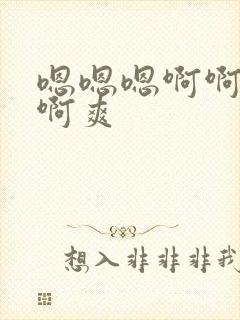 嗯嗯嗯啊啊
啊爽
想入非非非我